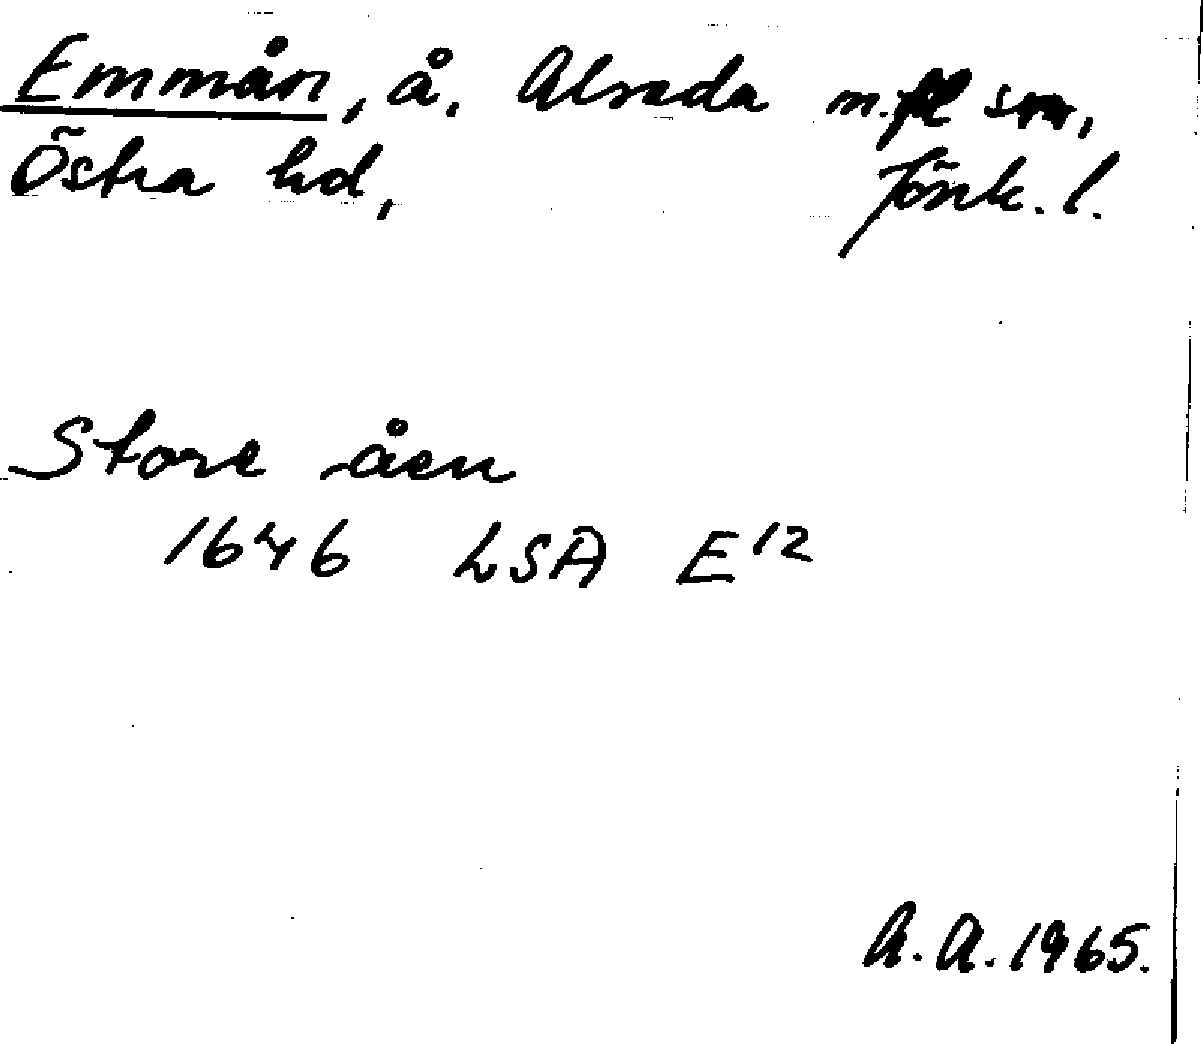 Emmån, å, Alseda m.fl snr,
Östra hd, Jönk. l.
Store åen
1646 LSA E12
A.A. 1965.